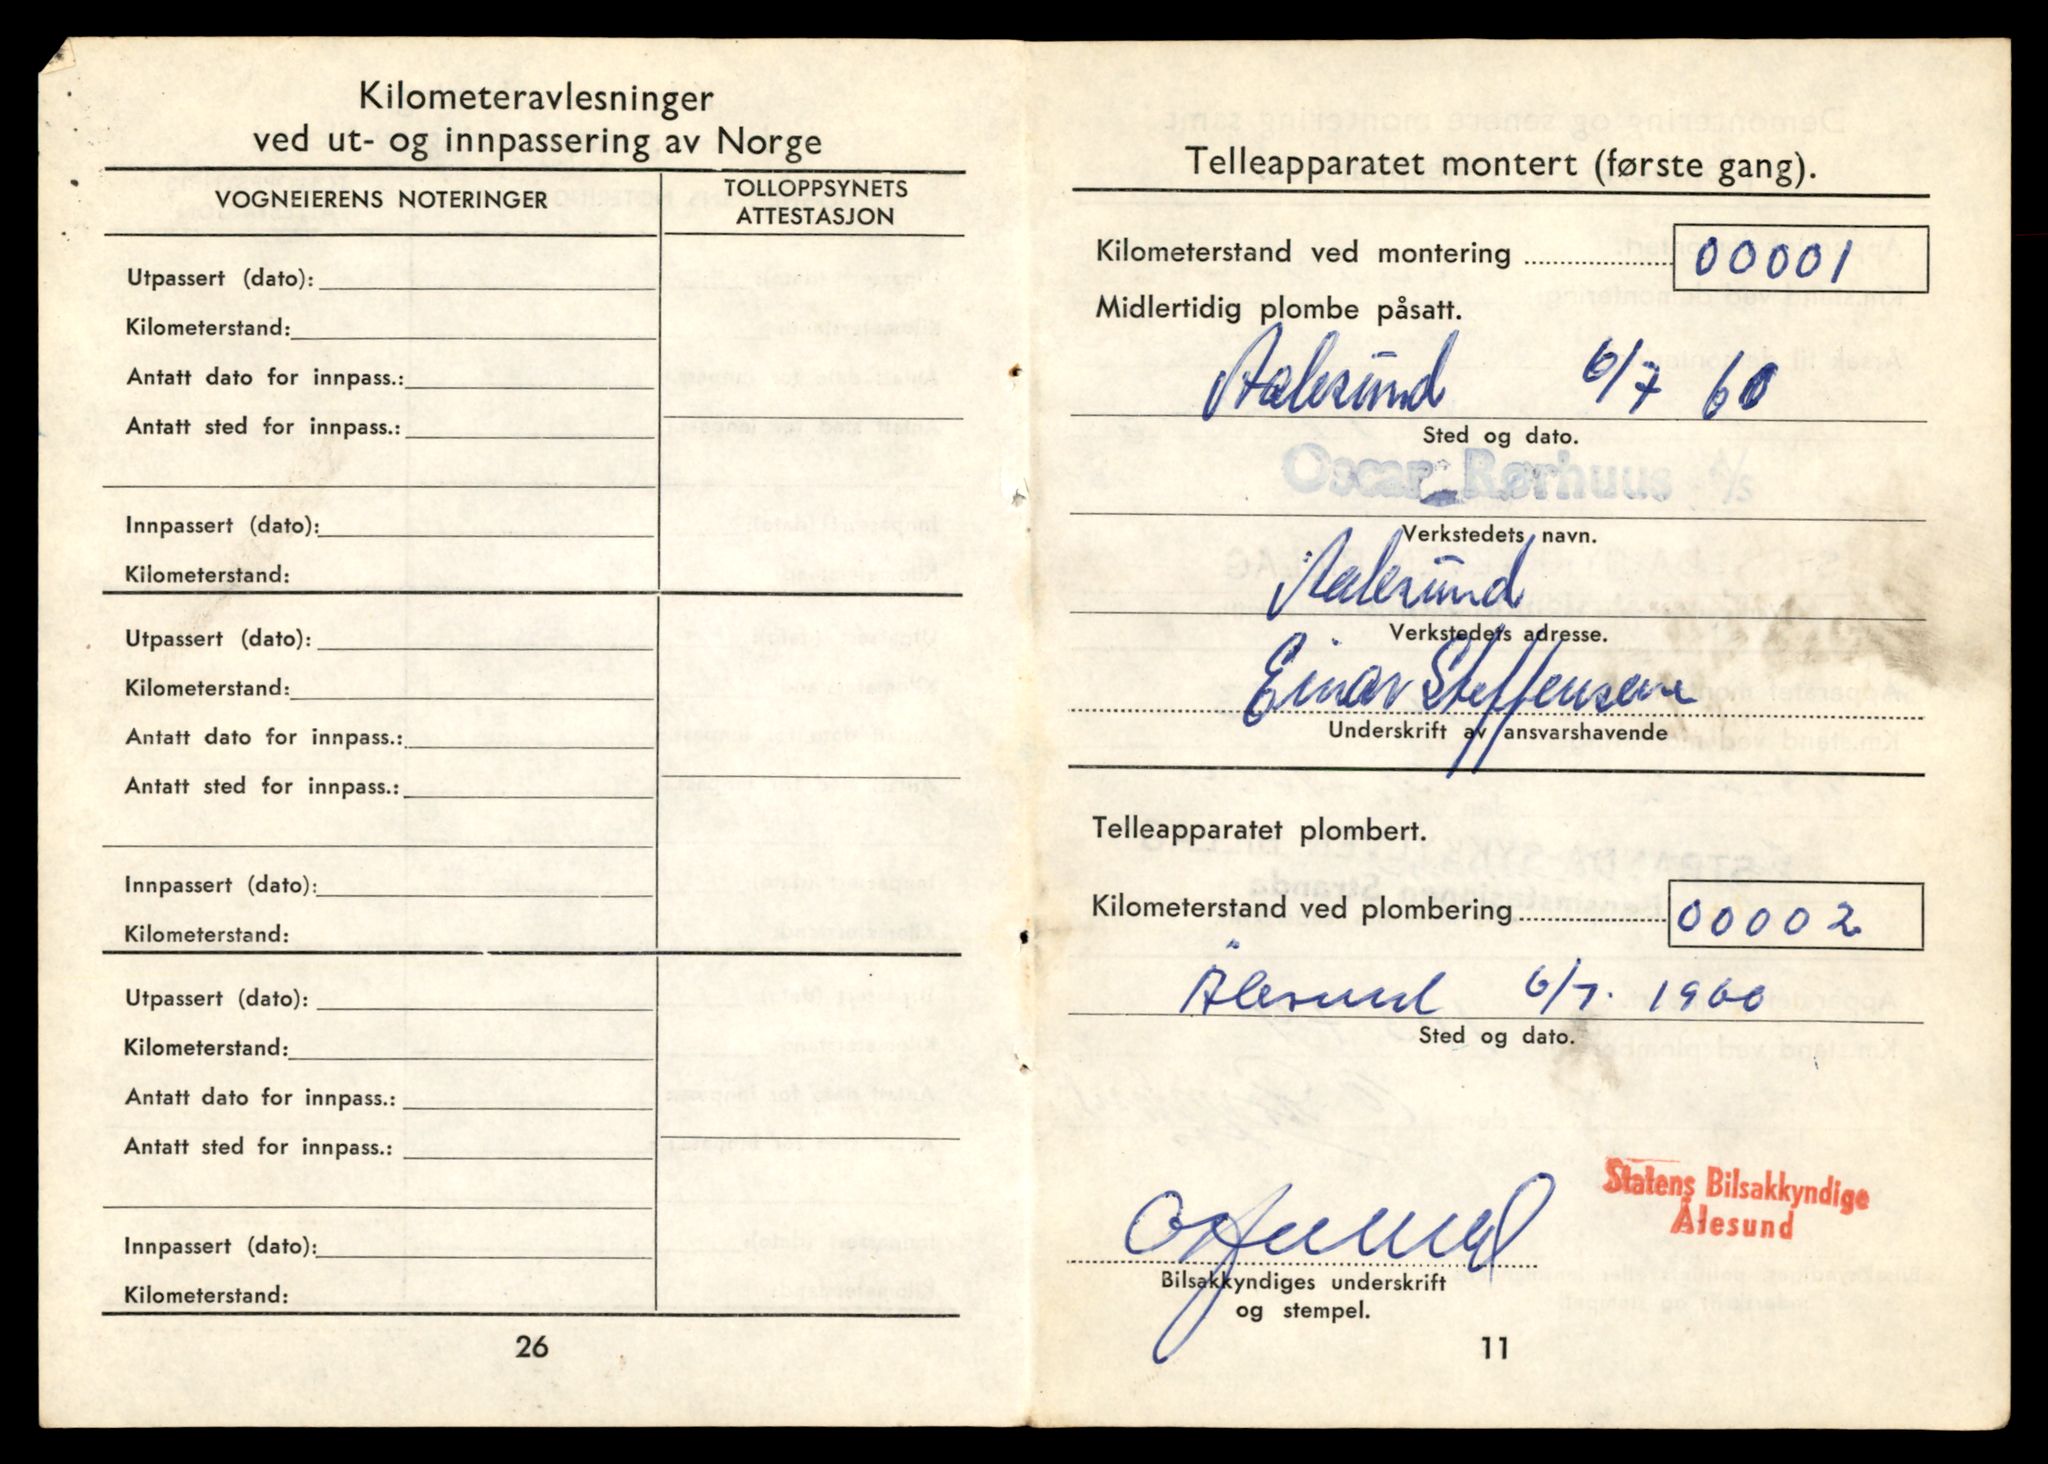 Kilometeravlesninger
ved ut- og innpassering av Norge
VOGNEIERENS NOTERINGER
TOLLOPPSYNETS
ATTESTASJON
Utpassert (dato):
Kilometerstand:
Antatt dato for innpass.:
Antatt sted for innpass.:
Innpassert (dato):
Kilometerstand:
Utpassert (dato):
Kilometerstand:
Antatt dato for innpass.:
Antatt sted for innpass.:
Innpassert (dato):
Kilometerstand:
Utpassert (dato):
Kilometerstand:
Antatt dato for innpass.:
Antatt sted for innpass.:
Innpassert (dato):
Kilometerstand:
26
Telleapparatet montert (første gang).
Kilometerstand ved montering 00001
Midlertidig plombe påsatt.
Aalesund 6/7 60
Sted og dato.
Oscar Rørhuus A/S
Verkstedets navn.
Aalesund
Verkstedets adresse.
Einar Steffensen
Underskrift av ansvarshavende
Telleapparatet plombert.
Kilometerstand ved plombering 00002
Ålesund 6/7. 1960
Sted og dato.
Statens Bilsakkyndige
Ålesund
Bilsakkyndiges underskrift
og stempel.
11